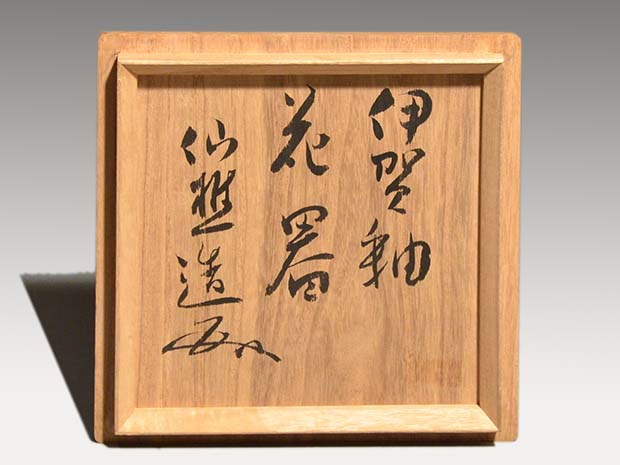 伊賀釉
花器
仙樵造